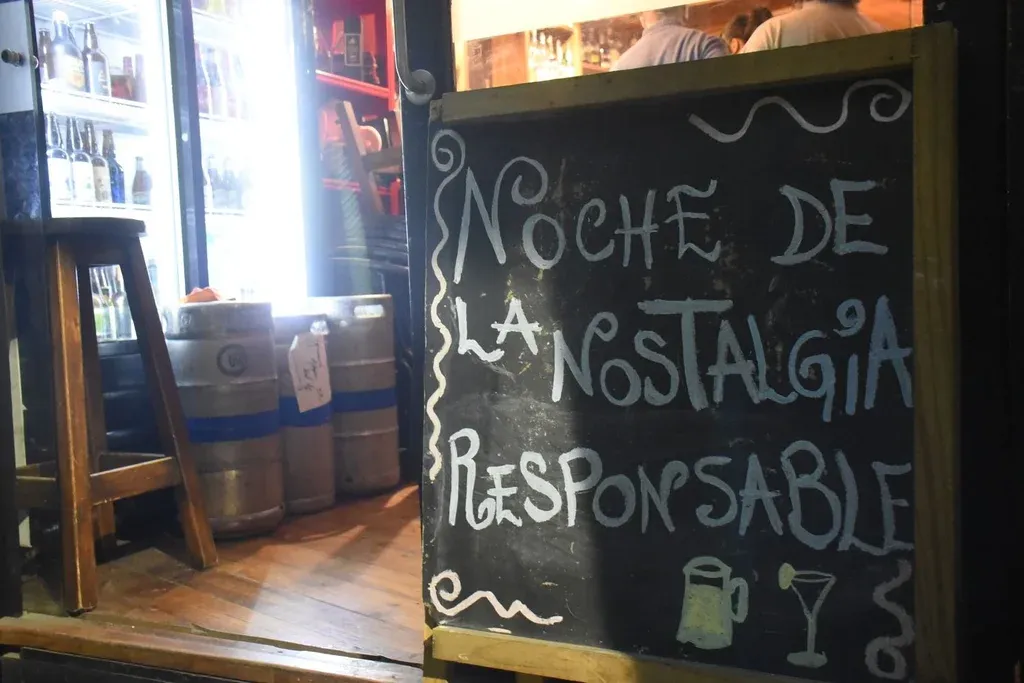 NOCHE DE
LA NOSTALGIA
RESPONSABLE